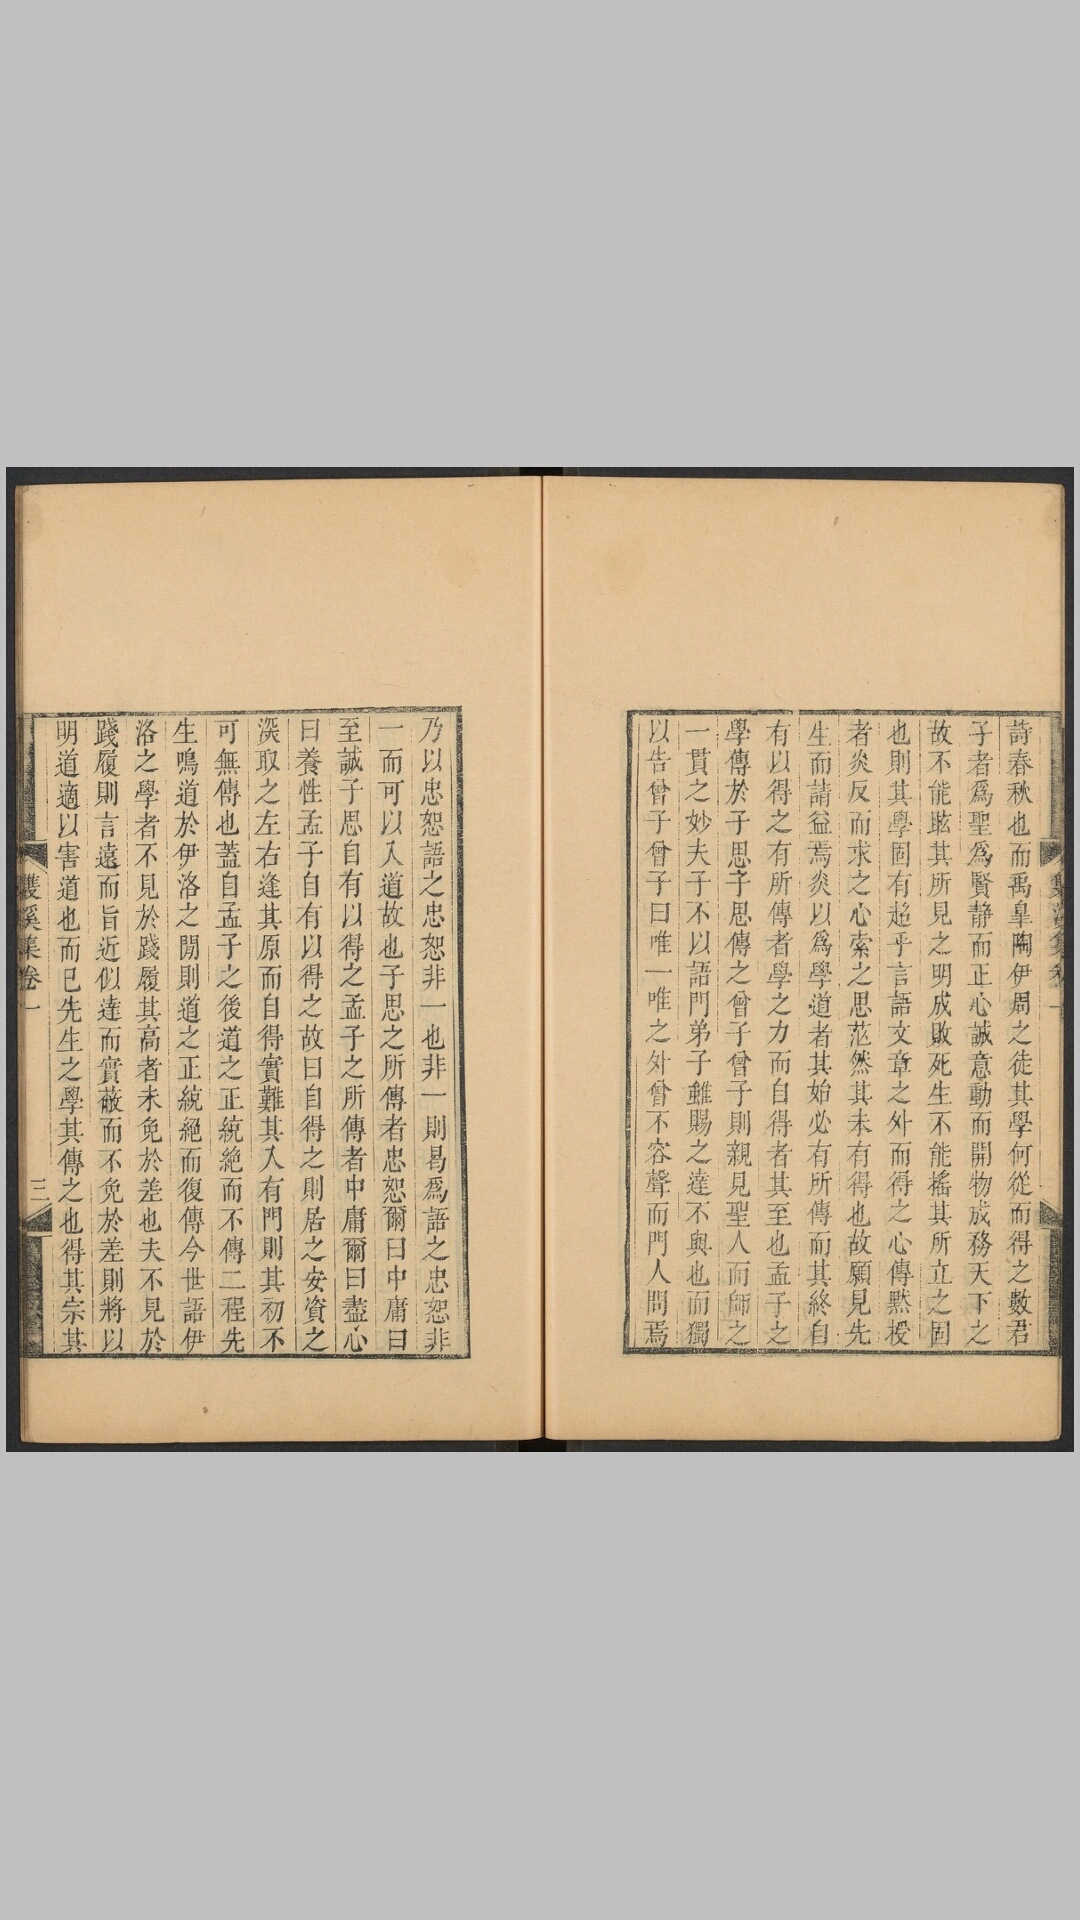 詩春秋也而禹臯陶伊周之徒其學何從而得之數君
子者爲聖爲賢静而正心誠意動而開物成務天下之
故不能眩其所見之明成敗死生不能搖其所立之固
也則其學固有超乎言語文章之外而得之心傳黙授
者炎反而求之心索之思茫然其未有得也故願見先
生而請益焉炎以爲學道者其始必有所傳而其終自
有以得之有所傳者學之力而自得者其至也孟子之
學傳於子思子思傳之曾子曾子則親見聖人而師之
一貫之妙夫子不以語門弟子雖賜之達不與也而獨
以告曾子曾子曰唯一唯之外曾不容聲而門人問焉
雙溪集卷一
乃以忠恕語之忠恕非一也非一則曷爲語之忠恕非
一而可以入道故也子思之所傳者忠恕爾曰中庸曰
至誠子思自有以得之孟子之所傳者中庸爾曰盡心
曰養性孟子自有以得之故曰自得之則居之安資之
深取之左右逢其原而自得實難其入有門則其初不
可無傳也蓋自孟子之後道之正統絶而不傳二程先
生鳴道於伊洛之閒則道之正統絕而復傳今世語伊
洛之學者不見於踐履其高者未免於差也夫不見於
踐履則言遠而旨近似達而實蔽而不免於差則將以
明道適以害道也而已先生之學其傳之也得其宗其
雙溪集卷一
三